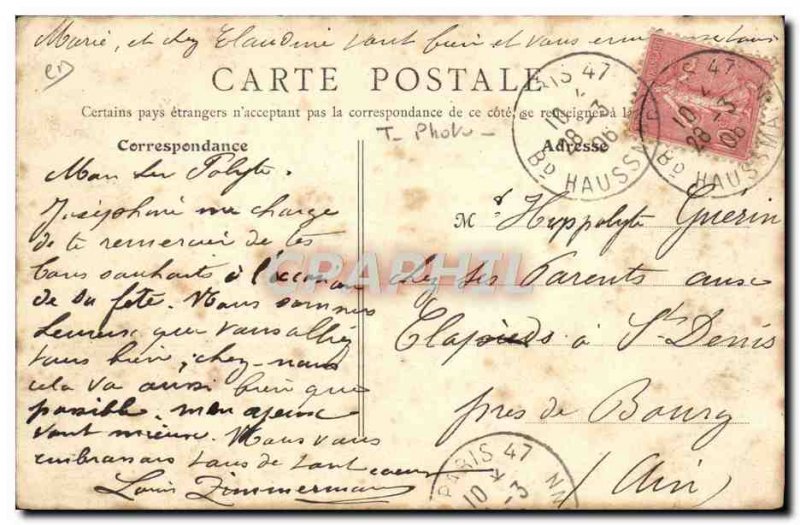 Marie, et chez Claudine vont bien et vous embrasse tous
CARTE POSTALE
Certains pays étrangers n'acceptant pas la correspondance de ce côté, se renseigner à la
T- Photo -
Correspondance
Mon cher Polyte.
Joséphine me charge
de te remercier de tes
bons souhaits à l'occasion
de sa fête. Nous sommes
heureux que vous alliez
tous bien, chez nous
cela va aussi bien que
possible. mes yeux
vont mieux. Nous vous
embrassons tous de tout coeur
Louis Zimmermann
Adresse
Mr Hyppolyte Guérin
chez ses Parents aux
Clapieds à St Denis
près de Bourg
(Ain)
PARIS 47
10
28 -3
06
BD HAUSSM
PARIS 47 NN
10
28 -3
06
BD HAUSSMANN
PARIS 47 NN
10
-3
CARAPHIL